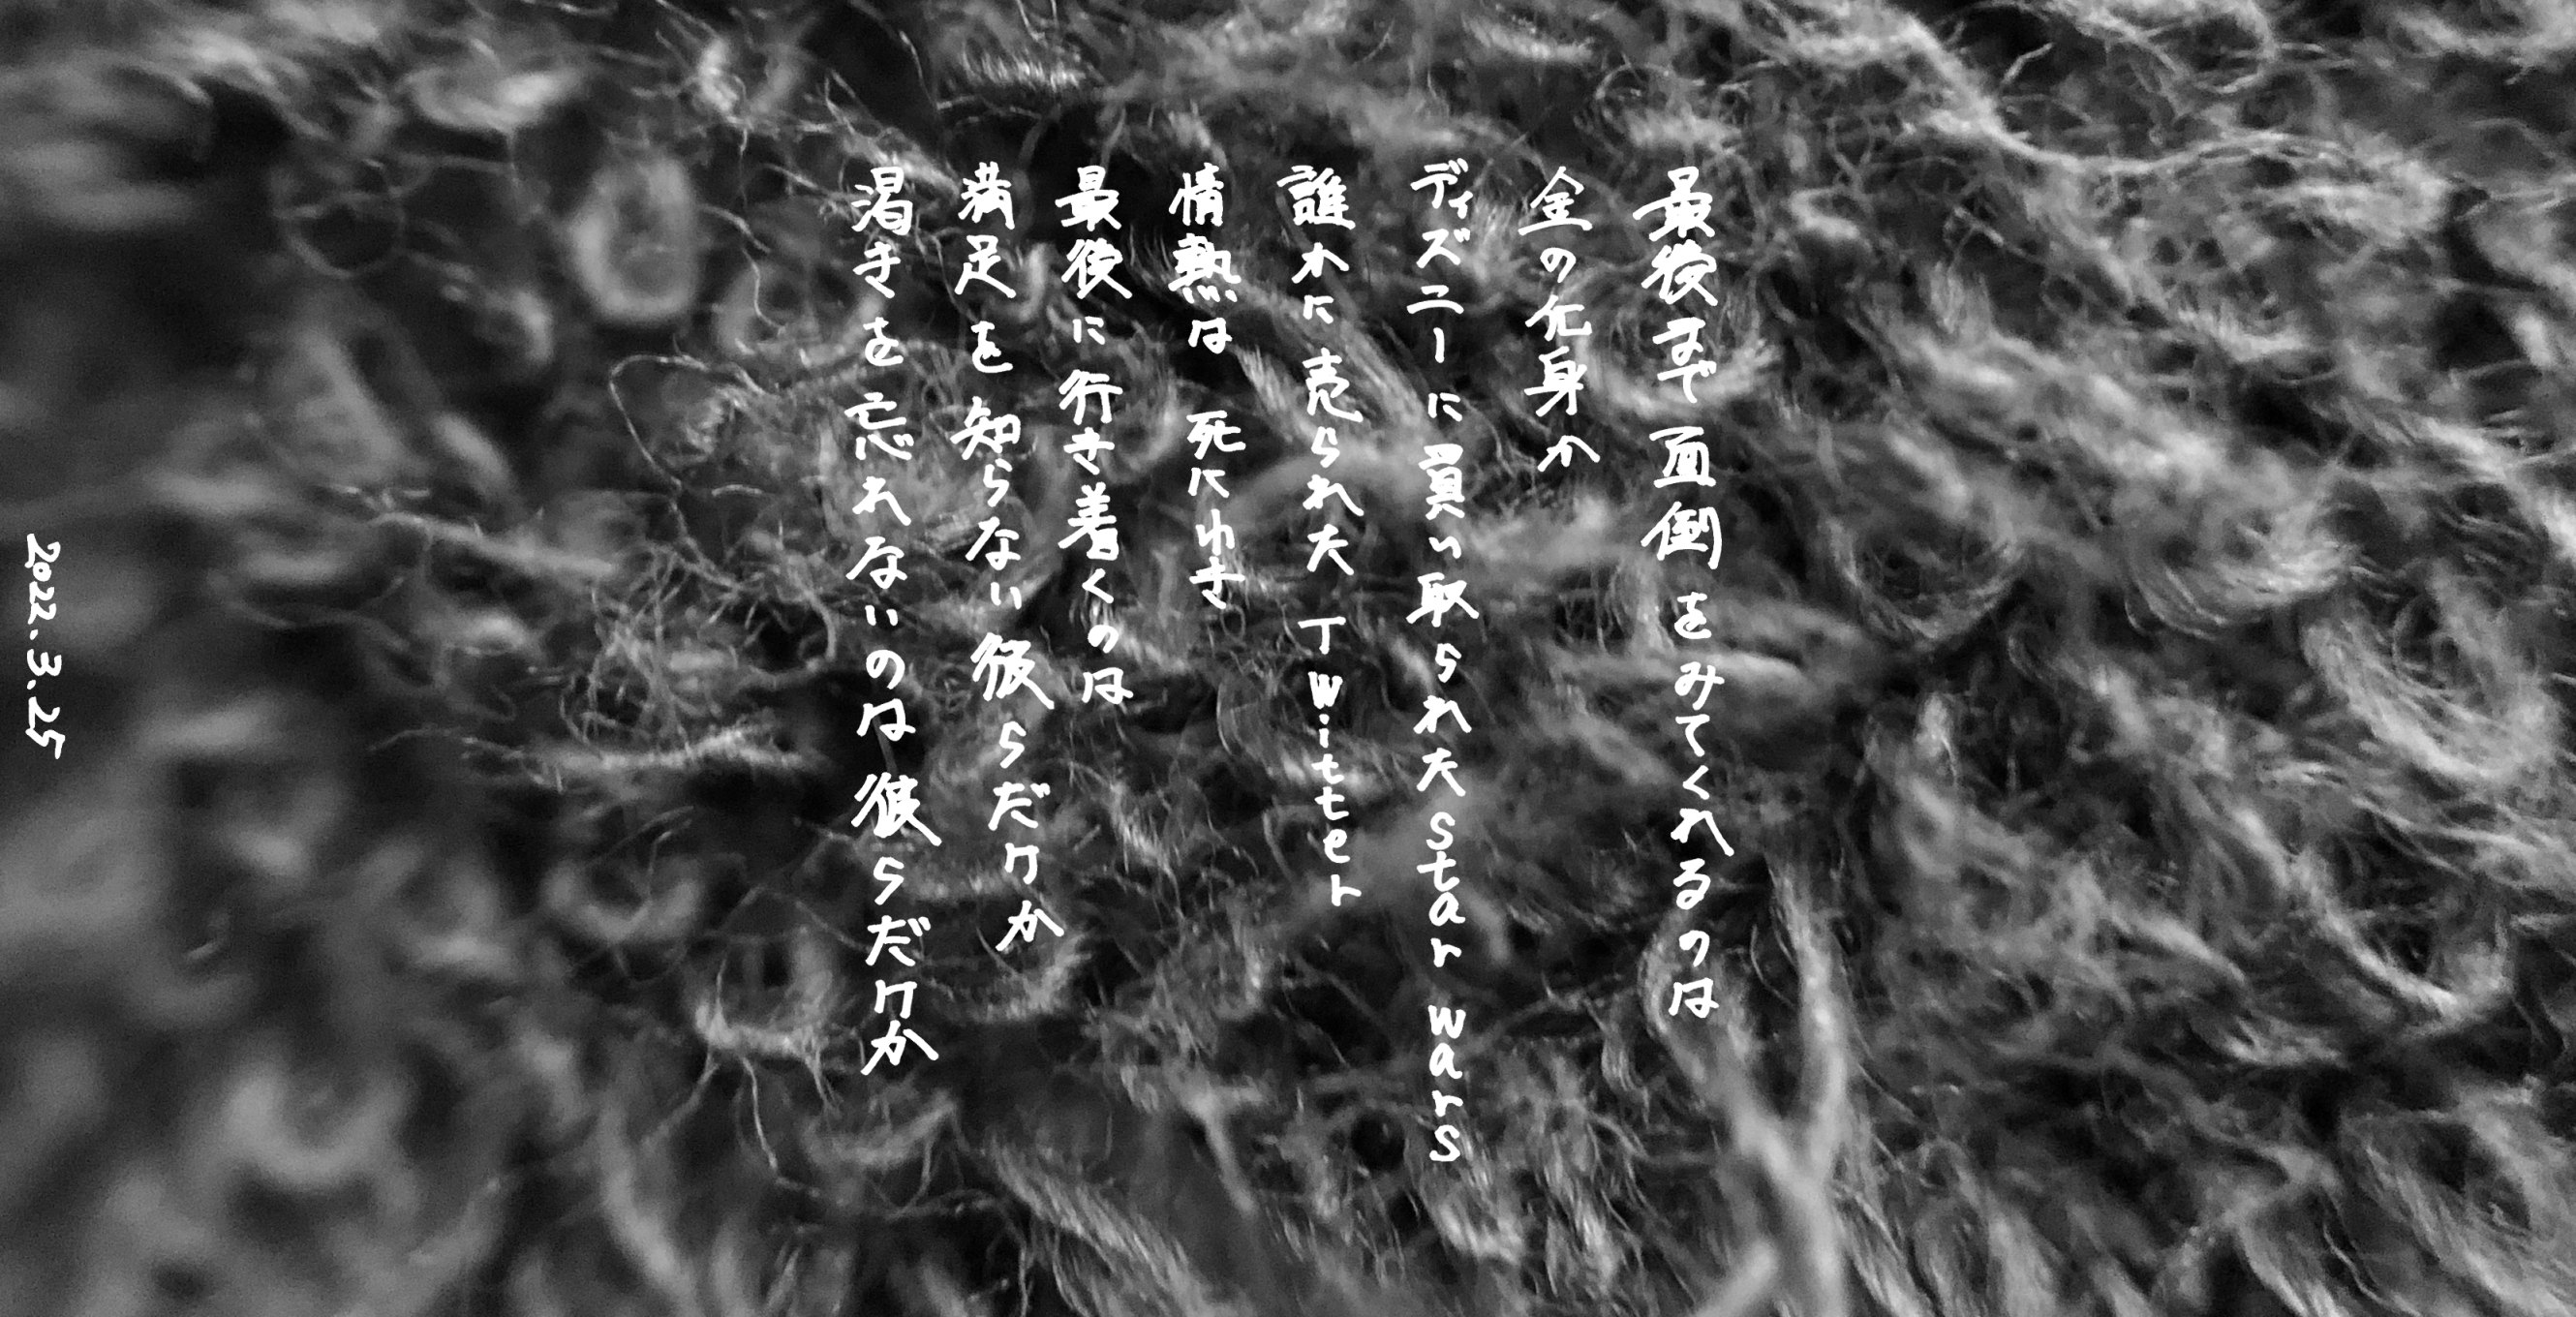 最後まで面倒をみてくれるのは
金の化身か
ディズニーに買い取られた Star Wars
誰かに売られた Twitter
情熱は 死にゆき
最後に行き着くのは
満足を知らない彼らだけか
渇きを忘れないのは彼らだけか
2022.3.25